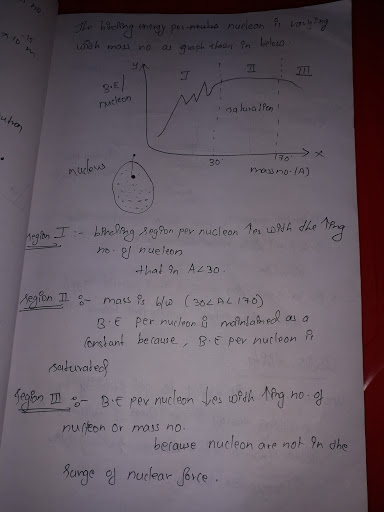 The binding energy per nucleon is varying
with mass no. as graph shown in below.
y
B.E/
nucleon
I
II
III
saturation
30
170
x
mass no. (A)
nucleus
region I :- binding region per nucleon ↑es with the ↑ing
no. of nucleon
that in A<30.
region II :- mass is b/w (30<A<170)
B.E per nucleon is maintained as a
constant because, B.E per nucleon is
saturated
region III :- B.E per nucleon ↓es with ↑ing no. of
nucleon or mass no.
because nucleon are not in the
range of nuclear force.